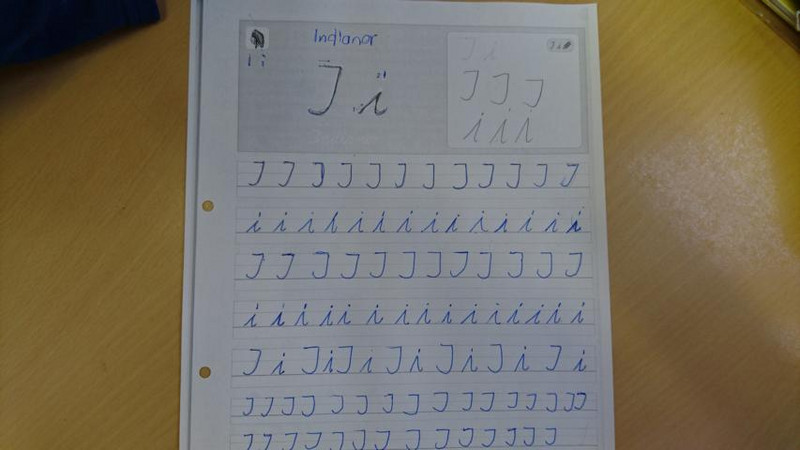 Indianer
I i
I i
I i
I I I
i i i
I I I I I I I I I I I I
i i i i i i i i i i i i i
I I I I I I I I I I I I
i i i i i i i i i i i i i i
I i I i I i I i I i I i I i
I I I I I I I I I I I I I I I I
I I I I I I I I I I I I I